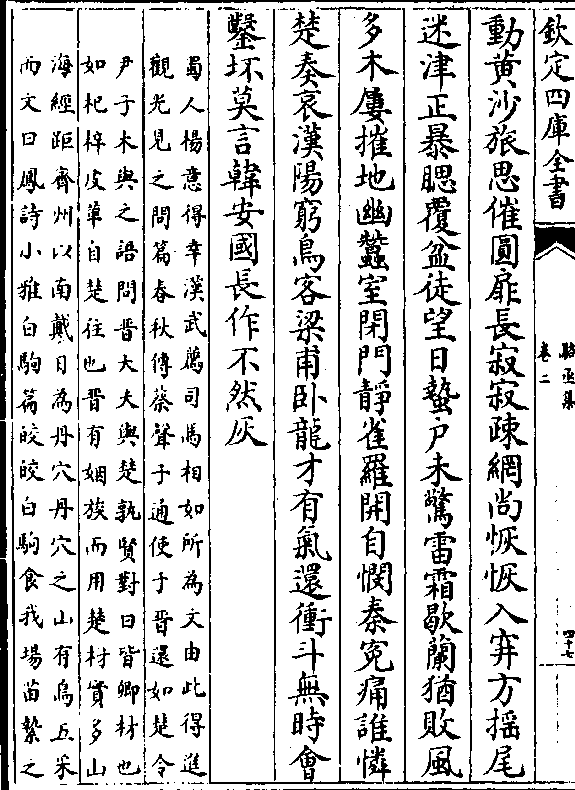 欽定四庫全書
駱丞集
卷二
四十七
動黄沙旅思催圓扉長寂寂疎網尚恢恢入穽方揺尾
迷津正暴腮覆盆徒望日蟄户未驚雷霜歇蘭猶敗風
多木屢摧地幽蠶室閉門靜雀羅開自憫秦寃痛誰憐
楚奏哀漢陽窮鳥客梁甫卧龍才有氣還衝斗無時會
鑿坏莫言韓安國長作不然灰
蜀人楊意得幸漢武薦司馬相如所為文由此得進
觀光見之問篇春秋傳蔡聲子通使于晉還如楚令
尹子木與之語問晉大夫與楚孰賢對曰皆卿材也
如杞梓皮革自楚往也晉有姻族而用楚材實多山
海經距齊州以南戴日為丹穴丹穴之山有鳥五采
而文曰鳳詩小雅白駒篇皎皎白駒食我場苗縶之